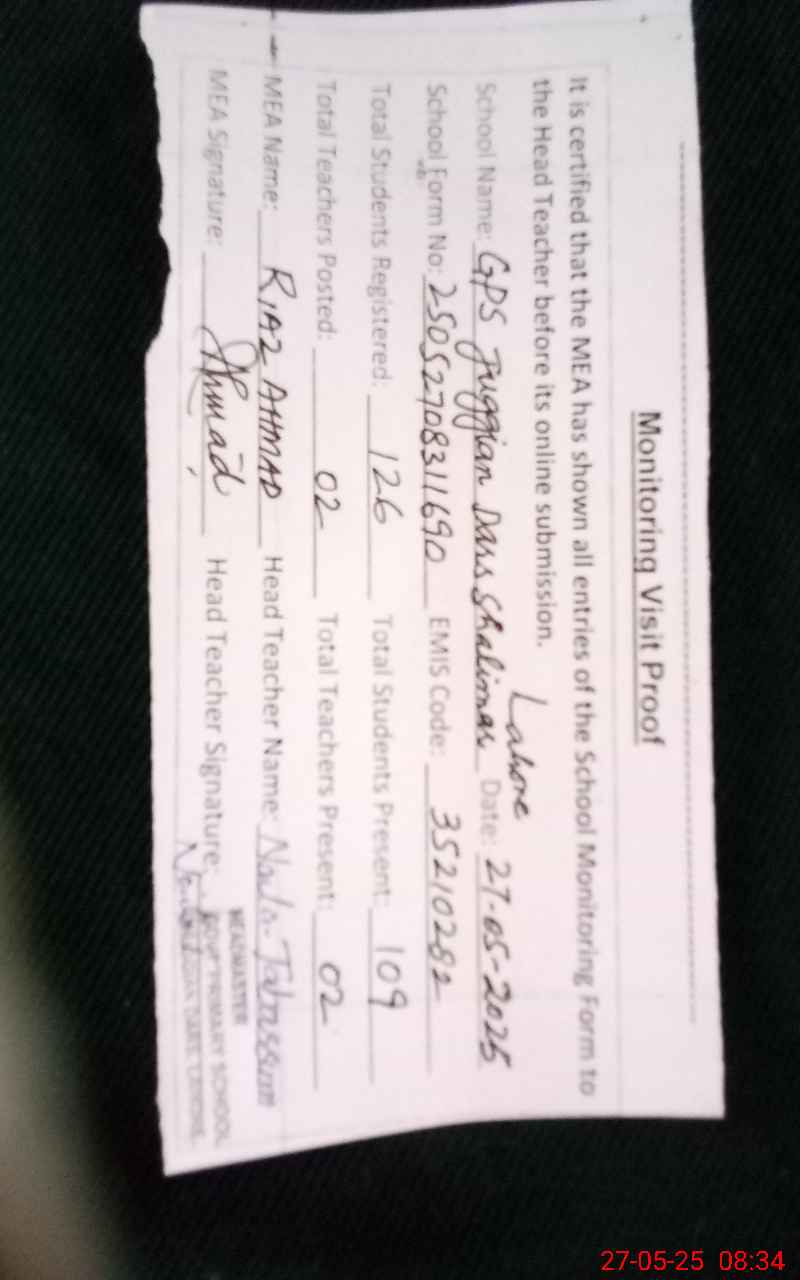 Monitoring Visit Proof
It is certified that the MEA has shown all entries of the School Monitoring Form to
the Head Teacher before its online submission.
Lahore
School Name: GPS Juggian Dars Shalimar Date: 27-05-2025
School Form No: 25052708311690 EMIS Code: 35210282
Total Students Registered: 126 Total Students Present: 109
Total Teachers Posted: 02 Total Teachers Present: 02
MEA Name: RIAZ AHMAD Head Teacher Name: Tabassum
MEA Signature: Ahmad Head Teacher Signature:
HEADMASTER
GOVT PRIMARY SCHOOL
27-05-25 08:34